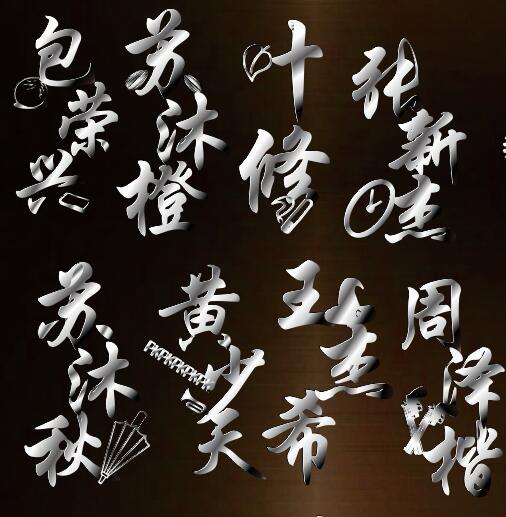 包荣兴
苏沐橙
叶修
张新杰
苏沐秋
黄少天
PKPKPKPKPK
王杰希
周泽楷